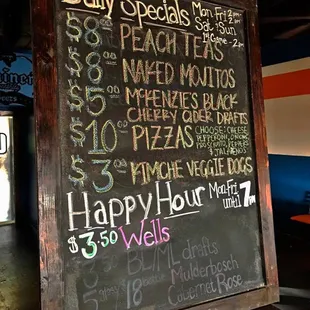 Daily Specials Mon-Fri
Sat-Sun
$8.00 PEACH TEAS
$8.00 NAKED MOJITOS
$5.00 MCKENZIE'S BLACK
CHERRY CIDER DRAFTS
$10.00 PIZZAS CHOOSE: CHEESE
PEPPERONI
$3.00 KIMCHE VEGGIE DOGS
Happy Hour Mon-Fri
until 7PM
$3.50 Wells
drafts
Mulderbosch
Cabernet Rose